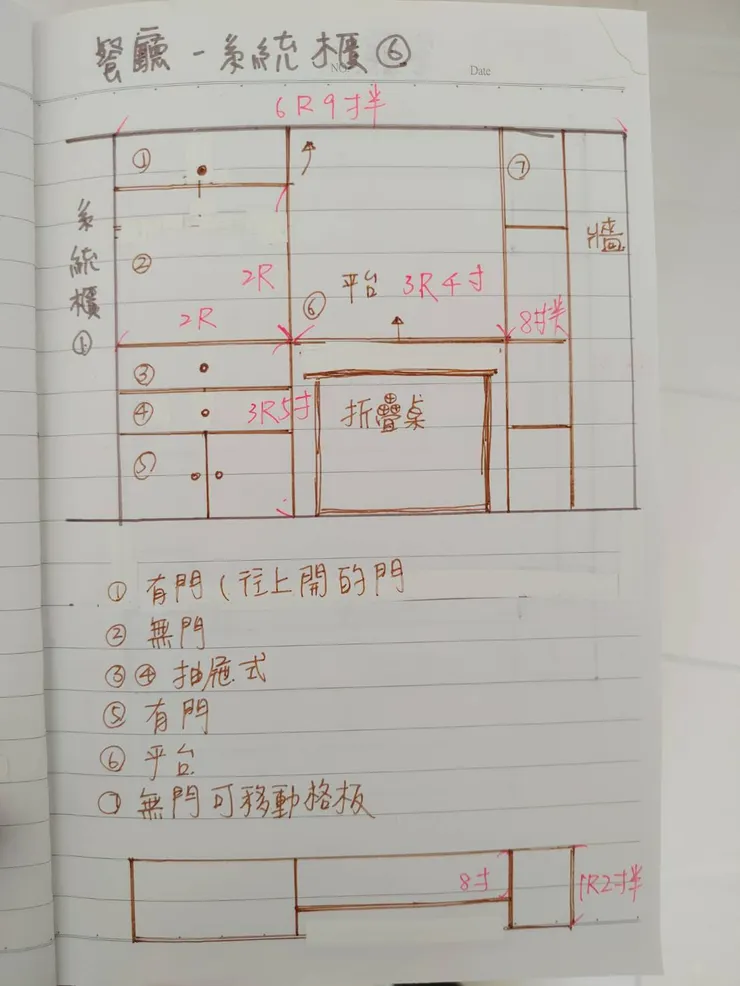 餐廳-系統櫃⑥
NO.
Date
6R9寸半
①
⑦
系統櫃①
牆
②
2R
平台 3R4寸
⑥
2R
8寸半
③
④
3R5寸
折疊桌
⑤
① 有門(往上開的門
② 無門
③④ 抽屜式
⑤ 有門
⑥ 平台
⑦ 無門可移動格板
8寸
1R2寸半